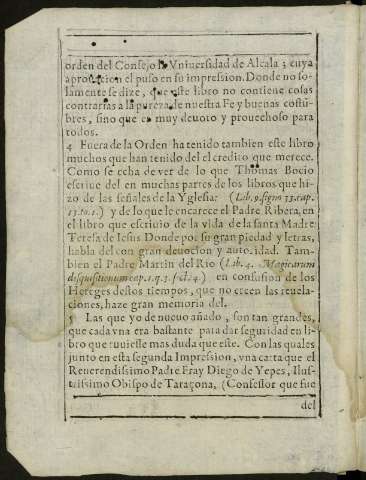 orden del Consejo la Vniuersidad de Alcala; cuya
aprouacion el puso en su impression. Donde no so-
lamente se dize, que este libro no contiene cosas
contrarias a la pureza de nuestra Fe y buenas costũ-
bres, sino que es muy deuoto y prouechoso para
todos.
4 Fuera de la Orden ha tenido tambien este libro
muchos que han tenido del el credito que merece.
Como se echa de ver de lo que Thomas Bocio
escriue del en muchas partes de los libros que hi-
zo de las señales de la Yglesia: (Lib. 9. signo 33. cap.
13. to. 1.) y de lo que le encarece el Padre Ribera, en
el libro que escriuio de la vida de la santa Madre
Teresa de Iesus Donde por su gran piedad y letras,
habla del con gran deuocion y autoridad. Tam-
bien el Padre Martin del Rio (Lib. 4. Magicarum
disquisitionum cap. 1. q. 3. sect. 4.) en confusion de los
Hereges destos tiempos, que no creen las reuela-
ciones, haze gran memoria del.
5 Las que yo de nueuo añado, son tan grandes,
que cada vna era bastante para dar seguridad en li-
bro que tuuiesse mas duda que este. Con las quales
junto en esta segunda Impression, vna carta que el
Reuerendissimo Padre Fray Diego de Yepes, Ilus-
trissimo Obispo de Taraçona, (Confessor que fue
del